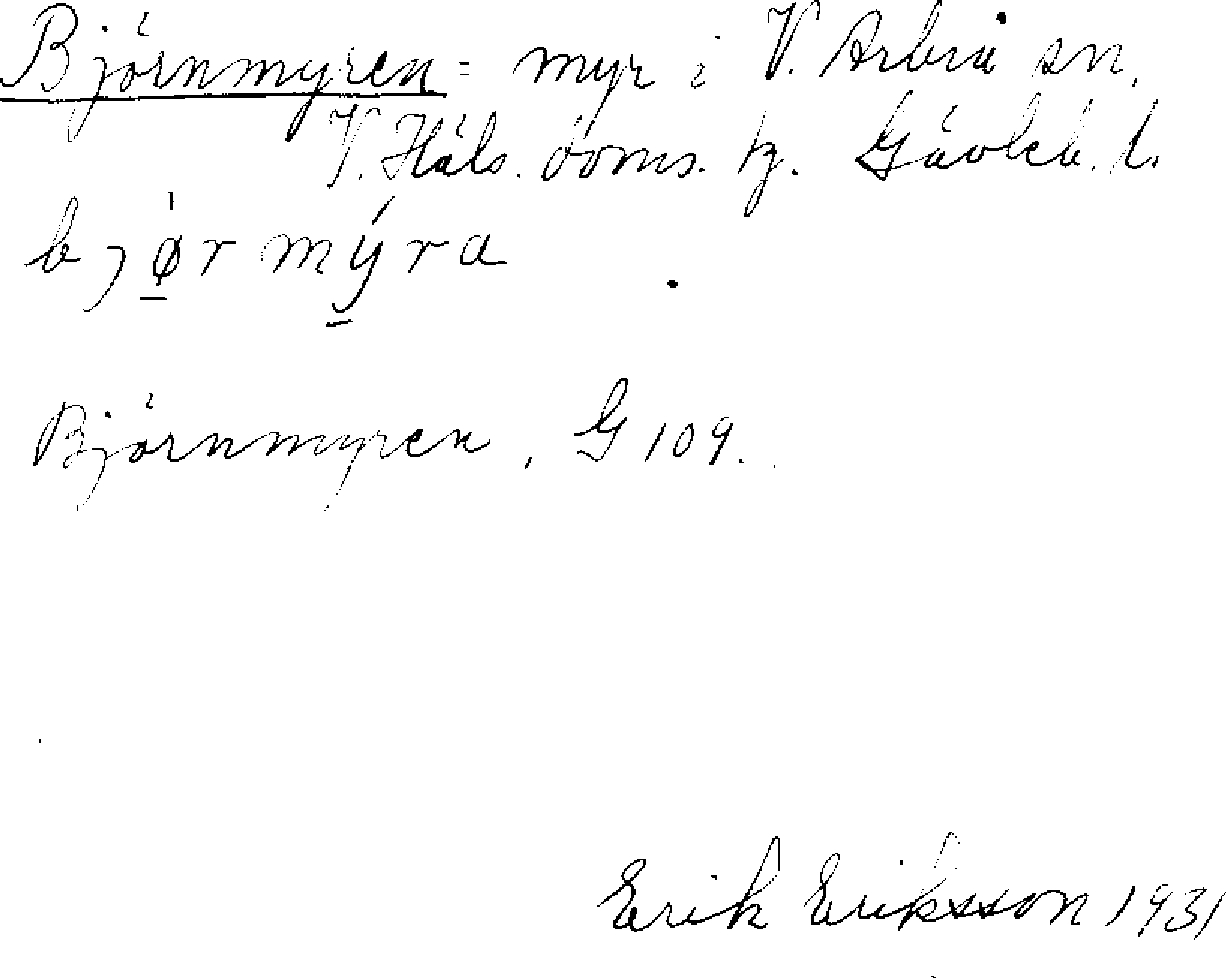 Björnmyren = myr i V. Arbrå sn.
V. Häls. doms. tg. Gävleb. l.
bjø̱rmý̱ra
Björnmyren, G 109.
Erik Eriksson 1931